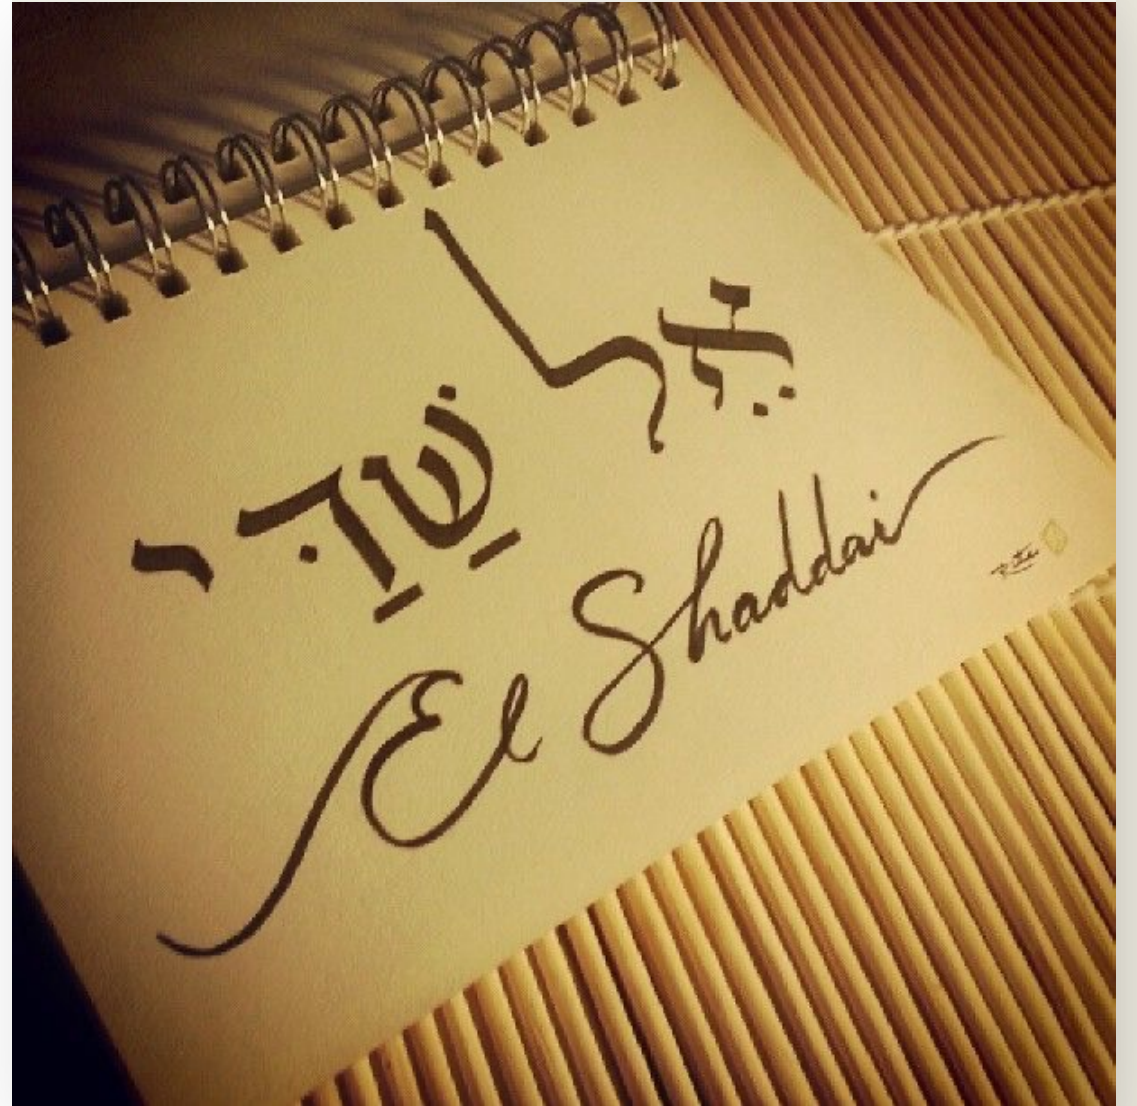 אֵל שַׁדַּי
El Shaddai